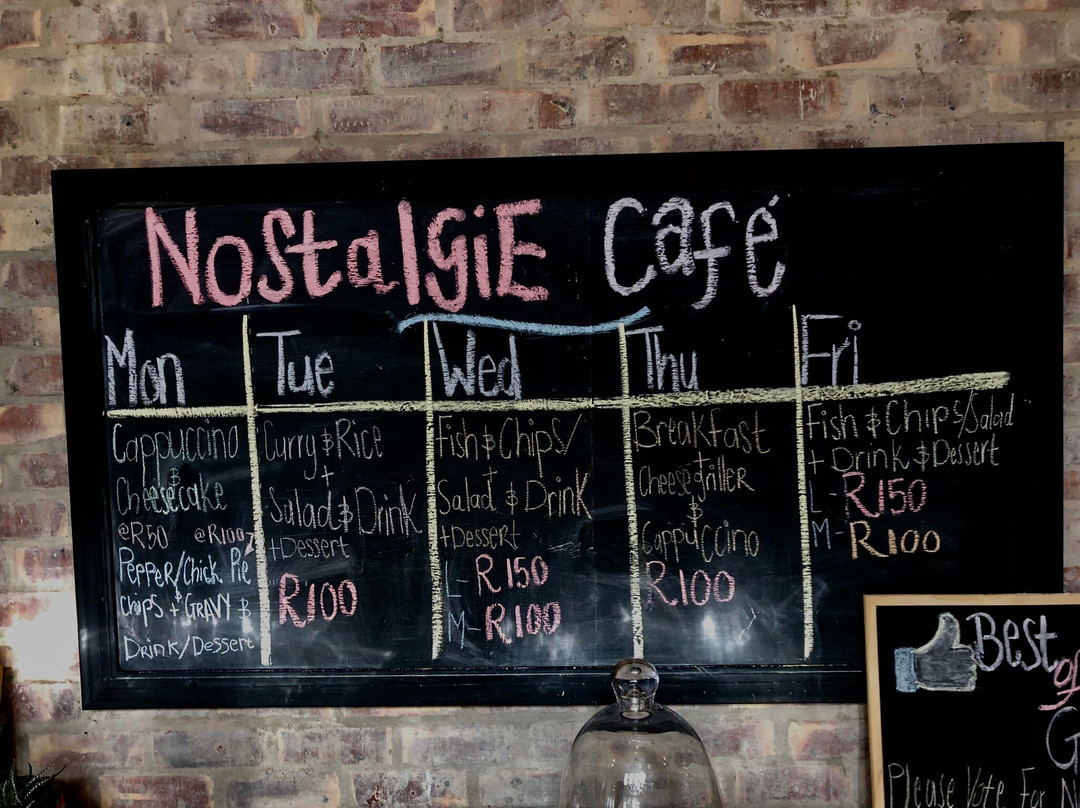 NoStalgiE Café
Mon
Cappuccino
&
Cheesecake
@R50 @R100
Pepper/Chick Pie
&
chips + GRAVY &
Drink/Dessert
Tue
Curry & Rice
+
Salad & Drink
+Dessert
R100
Wed
Fish & Chips/
+
Salad & Drink
+Dessert
L- R150
M- R100
Thu
Breakfast
+
Cheesegriller
&
Cappuccino
R100
Fri
Fish & Chips/Salad
+ Drink & Dessert
L- R150
M- R100
Best
of
G
Please Vote For